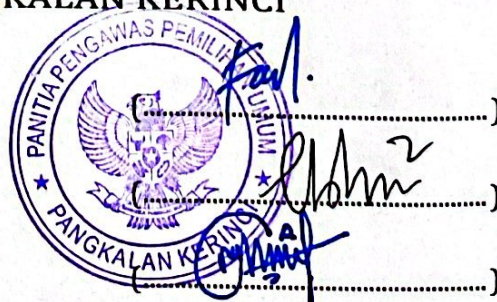 KALAN KERINCI
PANITIA PENGAWAS PEMILIHAN UMUM
PANGKALAN KERINCI
(........................................)
(........................................)
(........................................)